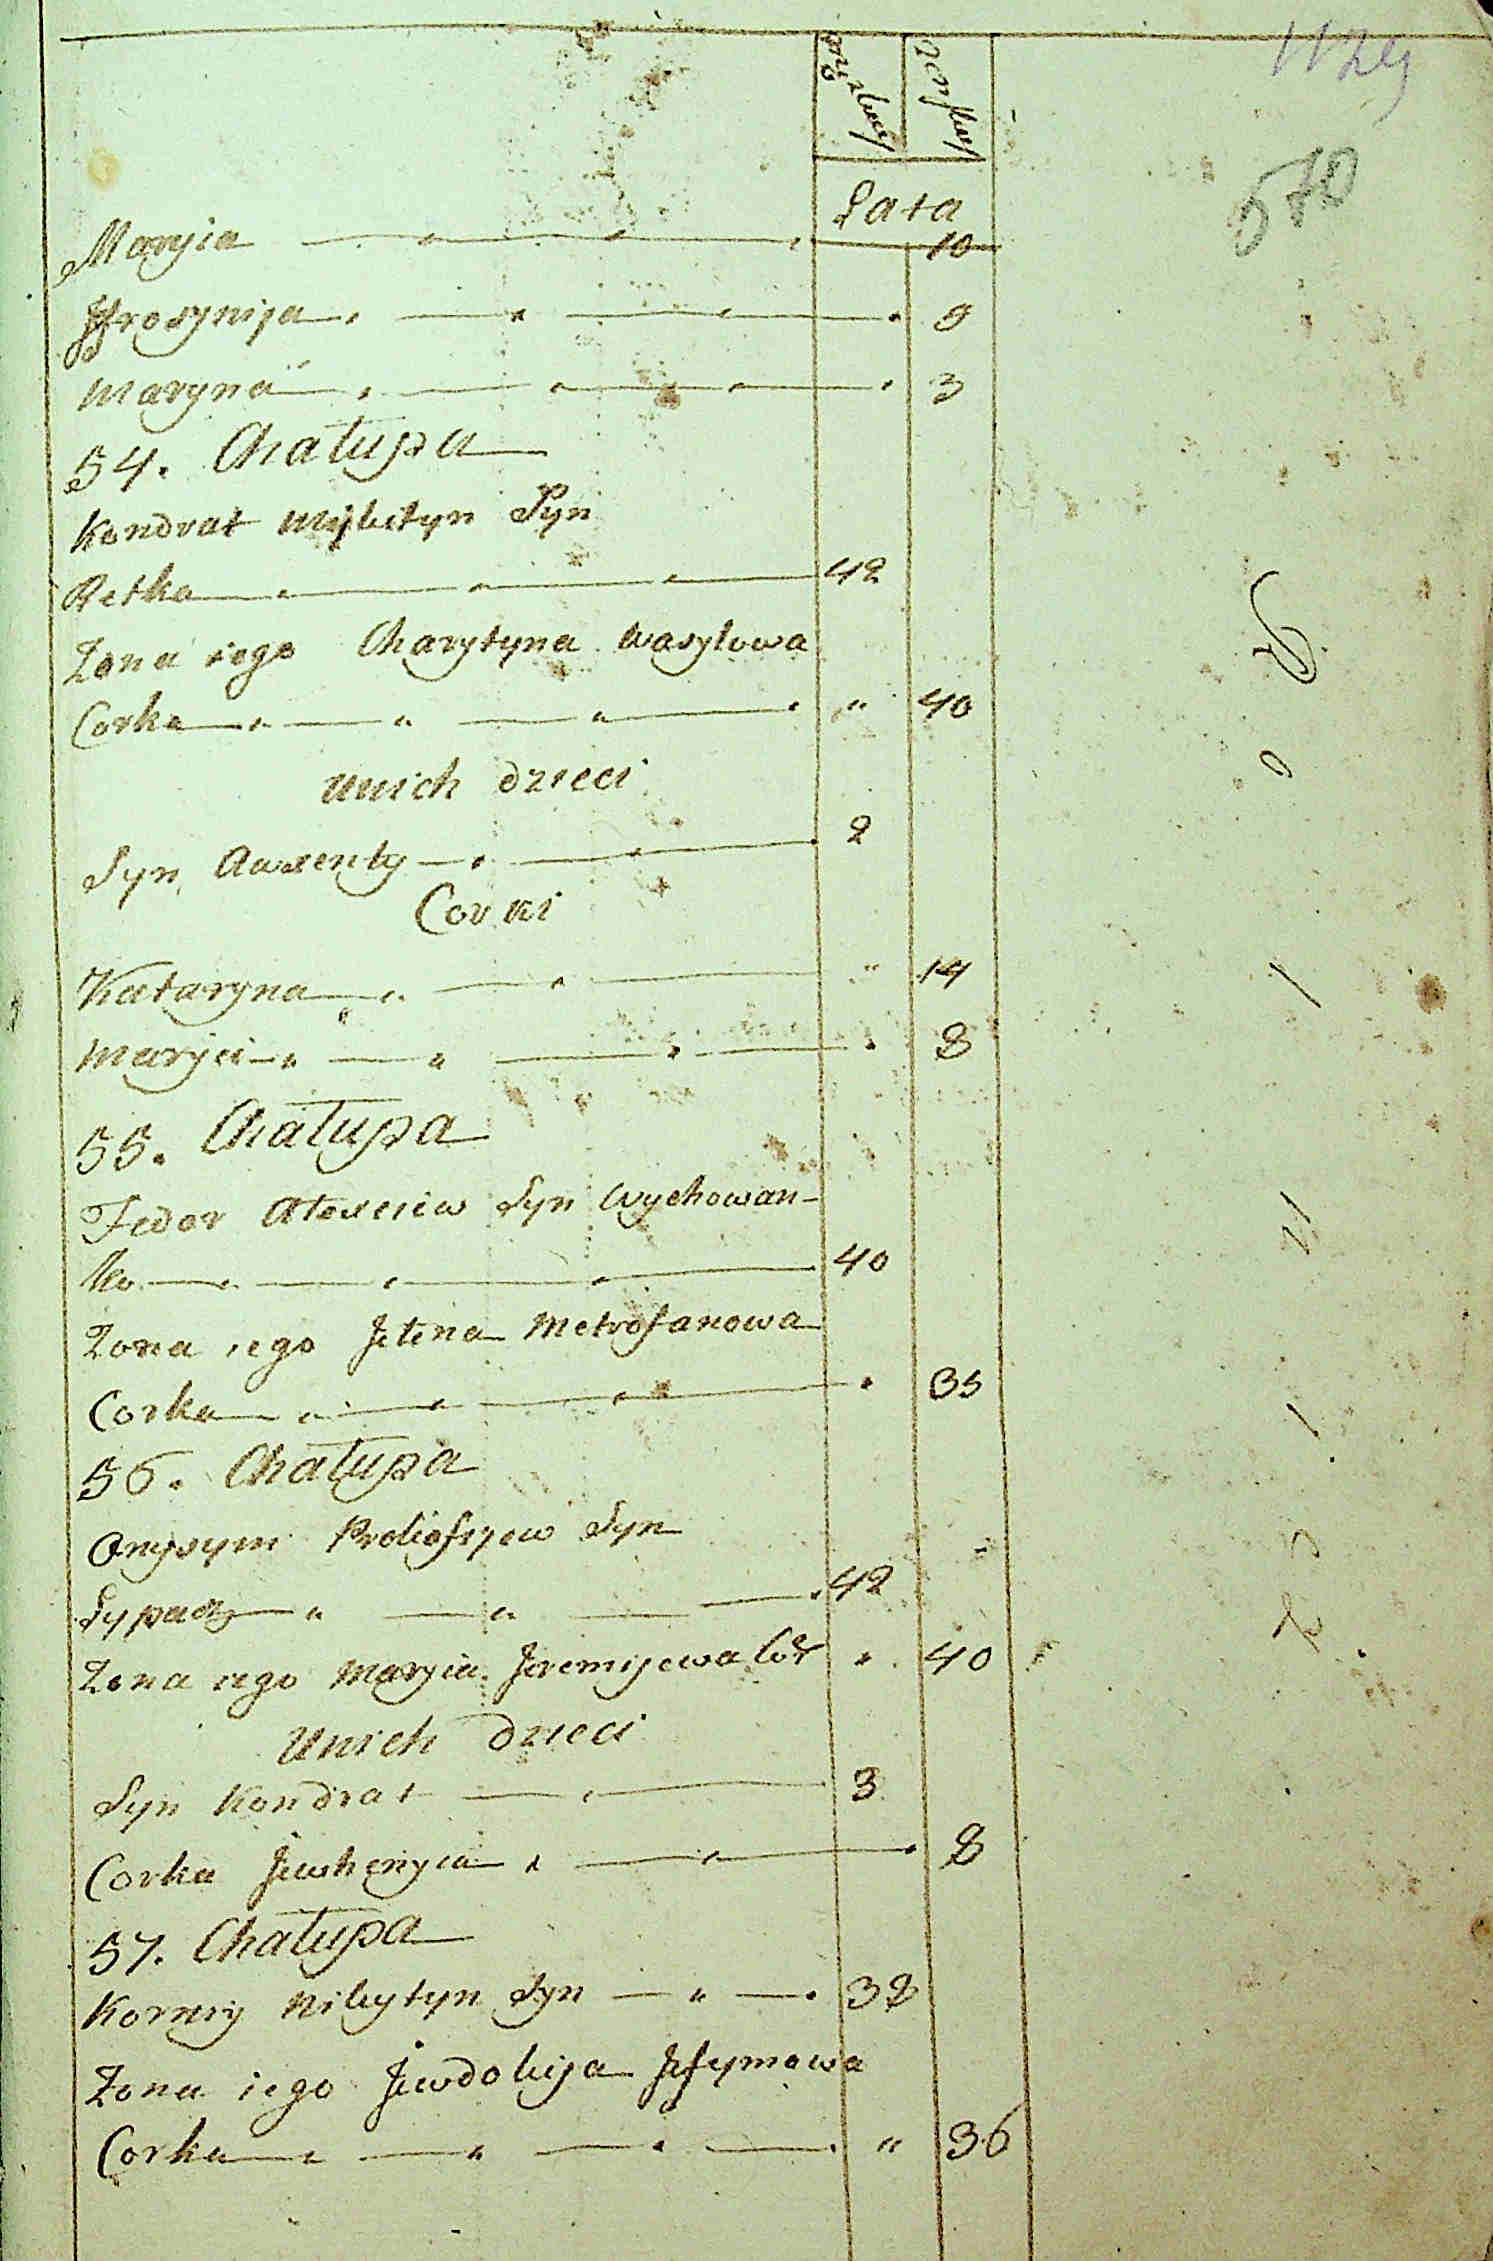 męzkiey żenskiey
570
Lata
Maryia 10
Jfrosynija 9
Maryna 3
54. Chałupa
Kondrat Mykityn Syn
Retka 42
Zona iego Charytyna Wasylowa
Corka " 40
Unich dzieci
Syn Awxenty 2
Corki
Kataryna " 14
Maryia 8
55. Chałupa
Fedor Alexeiew Syn Wychowan-
ko 40
Zona iego Jelena Metrofanowa
Corka 35
56. Chałupa
Onysym Prokofijew Syn
Sypacz 42
Zona iego Maryia Jeremijewa Cór " 40
Unich dzieci
Syn Kondrat 3
Corka Jewhenyia 8
57. Chałupa
Korniy Nikytyn Syn 38
Zona iego Jewdokija Jefymowa
Corka " 36